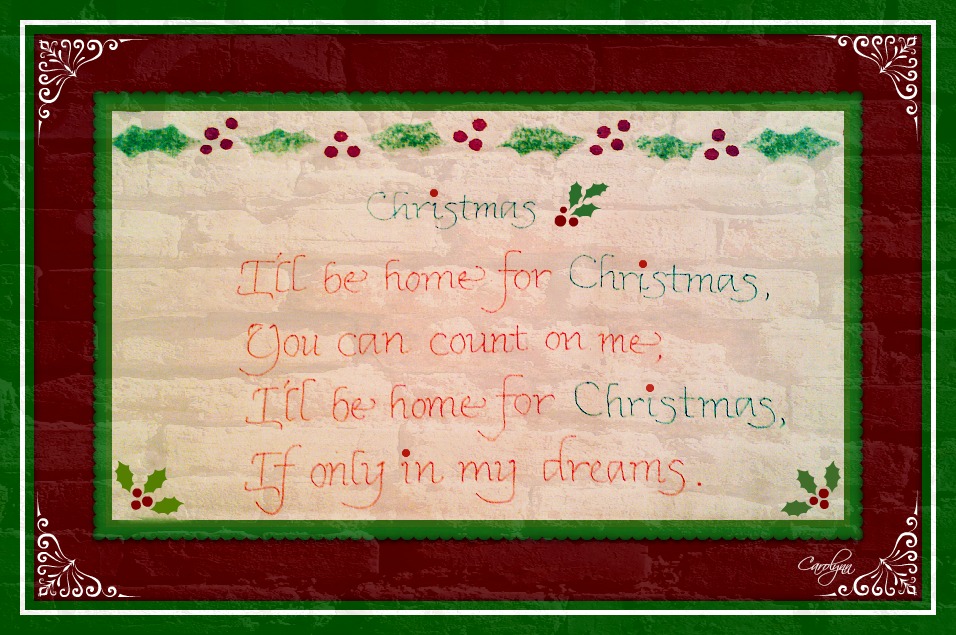 Christmas
I'll be home for Christmas,
You can count on me,
I'll be home for Christmas,
If only in my dreams.
Carolynn